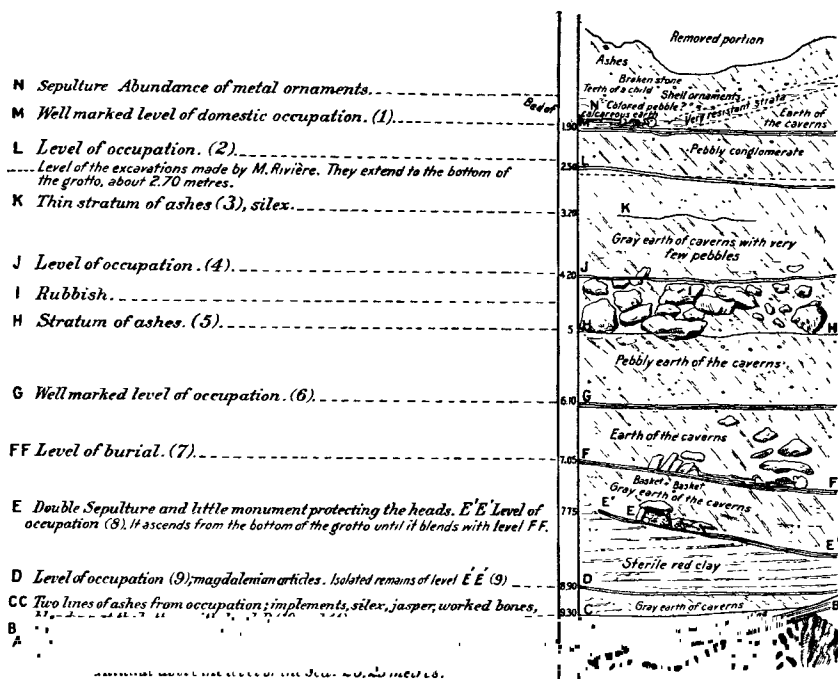 N Sepulture Abundance of metal ornaments.
M Well marked level of domestic occupation. (1)
L Level of occupation. (2)
Level of the excavations made by M. Rivière. They extend to the bottom of
the grotto, about 2.70 metres.
K Thin stratum of ashes (3), silex.
J Level of occupation. (4)
I Rubbish.
H Stratum of ashes. (5)
G Well marked level of occupation. (6)
FF Level of burial. (7)
E Double Sepulture and little monument protecting the heads. E'E' Level of
occupation (8). It ascends from the bottom of the grotto until it blends with level FF.
D Level of occupation (9); magdalenian articles. Isolated remains of level E'E' (9)
CC Two lines of ashes from occupation; implements, silex, jasper, worked bones,
B
A
Bed of
1.90
2.50
3.20
4.20
5
6.10
7.05
7.75
8.90
9.30
Removed portion
Ashes
Broken stone
Teeth of a child
Shell ornaments
N Colored pebble?
Very resistant strata
calcareous earth
Earth of
the caverns
M
Pebbly conglomerate
L
K
Gray earth of caverns with very
few pebbles
J
I
H H
Pebbly earth of the caverns
G
Earth of the caverns
F F
Basket Basket
Gray earth of the caverns
E' E E'
Sterile red clay
D
C Gray earth of caverns B